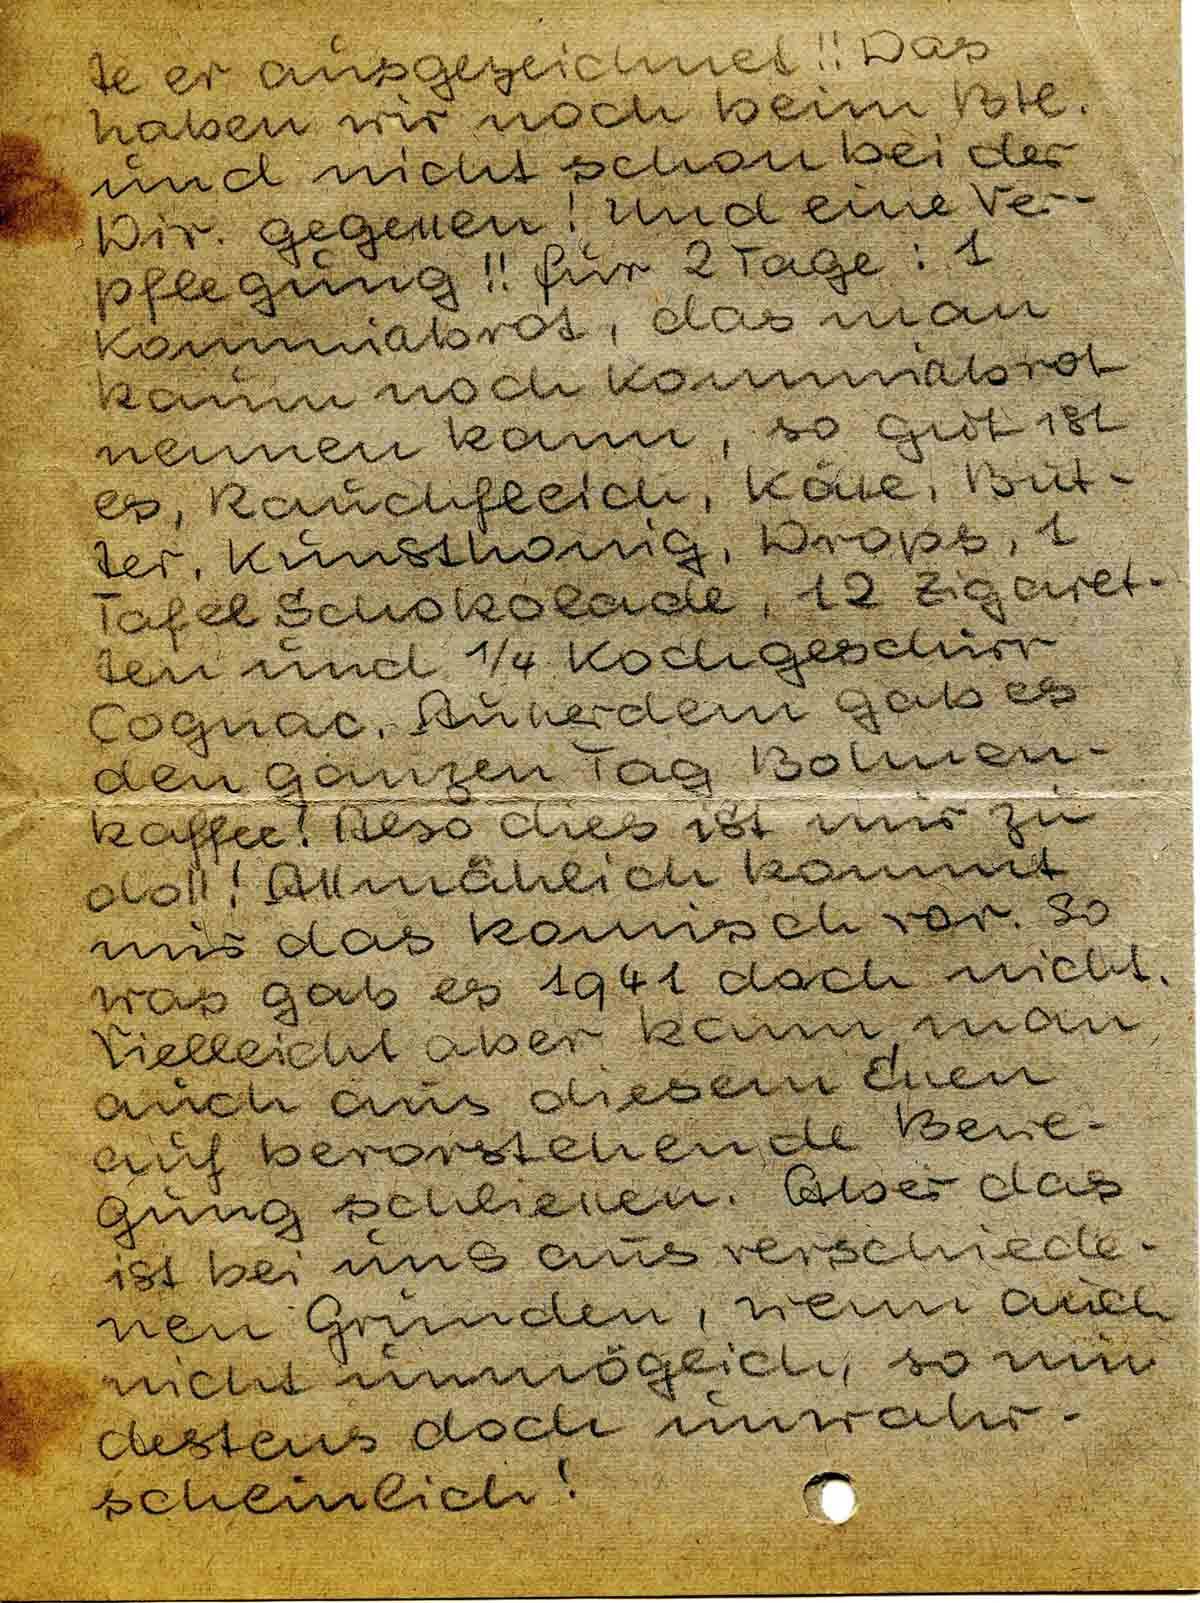 te er ausgezeichnet!! Das
haben wir noch beim Btl.
und nicht schon bei der
Div. gegessen! Und eine Ver-
pflegung!! für 2 Tage: 1
Kommißbrot, das man
kaum noch Kommißbrot
nennen kann, so gut ist
es, Rauchfleich, Käse, But-
ter, Kunsthonig, Drops, 1
Tafel Schokolade, 12 Zigaret-
ten und 1/4 Kochgeschirr
Cognac. Ausserdem gab es
den ganzen Tag Bohnen-
kaffee! Also dies ist mir zu
doll! Allmählich kommt
mir das komisch vor. So
was gab es 1941 doch nicht.
Vielleicht aber kann man
auch aus diesem Essen
auf bevorstehende Bewe-
gung schliessen. Aber das
ist bei uns aus verschiede-
nen Gründen, wenn auch
nicht unmöglich, so min
destens doch unwahr-
scheinlich!